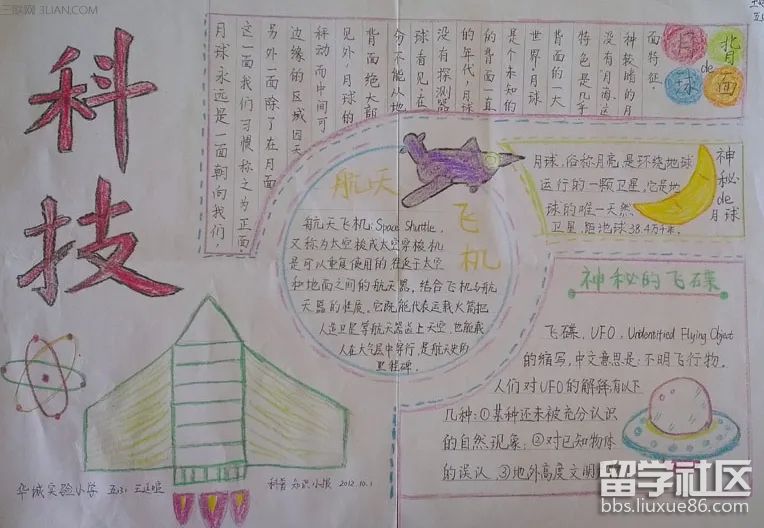 三联网 3LIAN.COM
科技
月球 de 背面
月球永远是一面朝向我们,
这一面我们习惯称之为正面.
另外一面除了在月面
边缘的区域因天
秤动而中间可
见外,月球的
背面绝大部
分不能从地
球看见.在
没有探测器
的年代,月球
的背面一直
是个未知的
世界.月球
背面的一大
特色是几乎
没有月海这
种较暗的月
面特征.
航天
飞机
航天飞机: Space Shuttle,
又称为太空梭或太空穿梭机
是可以重复使用的往返于太空
和地面之间的航天器,结合飞机与航
天器的性质.它既能代表运载火箭把
人造卫星等航天器送上天空,也能载
人在大气层中穿行,是航天史的
里程碑.
神秘de月球
月球,俗称月亮,是环绕地球
运行的一颗卫星,它是地
球的唯一天然
卫星,距地球38.4万千米.
神秘的飞碟
飞碟, UFO, Undentified Flying Object
的缩写,中文意思是:不明飞行物.
人们对UFO的解释有以下
几种:①某种还未被充分认识
的自然现象;②对已知物体
的误认,③地外高度文明
华城实验小学
科普知识小报 2012.10.1
留学社区
bbs.liuxue86.com